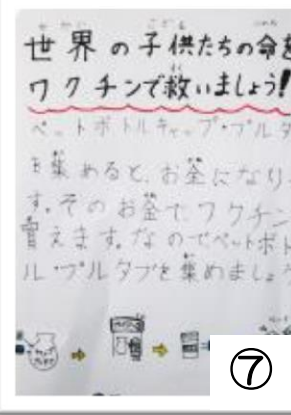 世界の子供たちの命を
ワクチンで救いましょう!
ペットボトルキャップ・プルタ
を集めると、お金になり
す。そのお金でワクチン
買えます。なのでペットボト
ル・プルタブを集めましょ
⑦